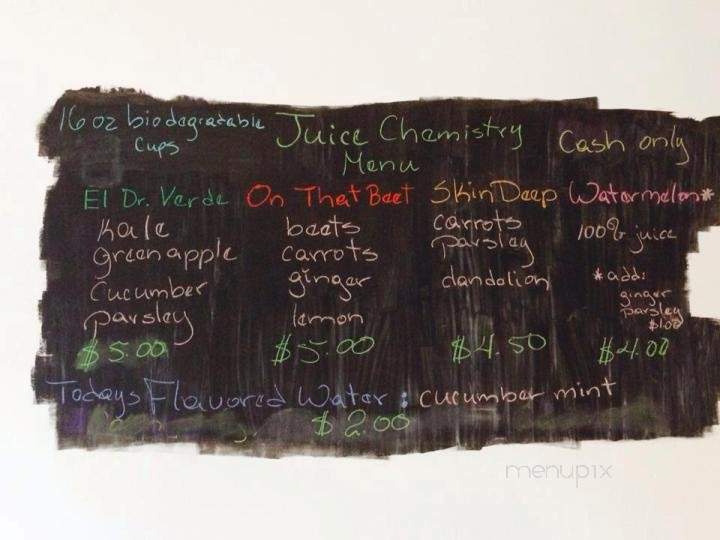 16 oz biodegradable
cups
Juice Chemistry
Menu
Cash only
El Dr. Verde
Kale
green apple
Cucumber
parsley
$5.00
On That Beet
beets
carrots
ginger
lemon
$5.00
Skin Deep
carrots
parsley
dandolion
$4.50
Watermelon*
100% juice
*add:
ginger
parsley
$1.00
$4.00
Todays Flavored Water: cucumber mint
$2.00
menupix